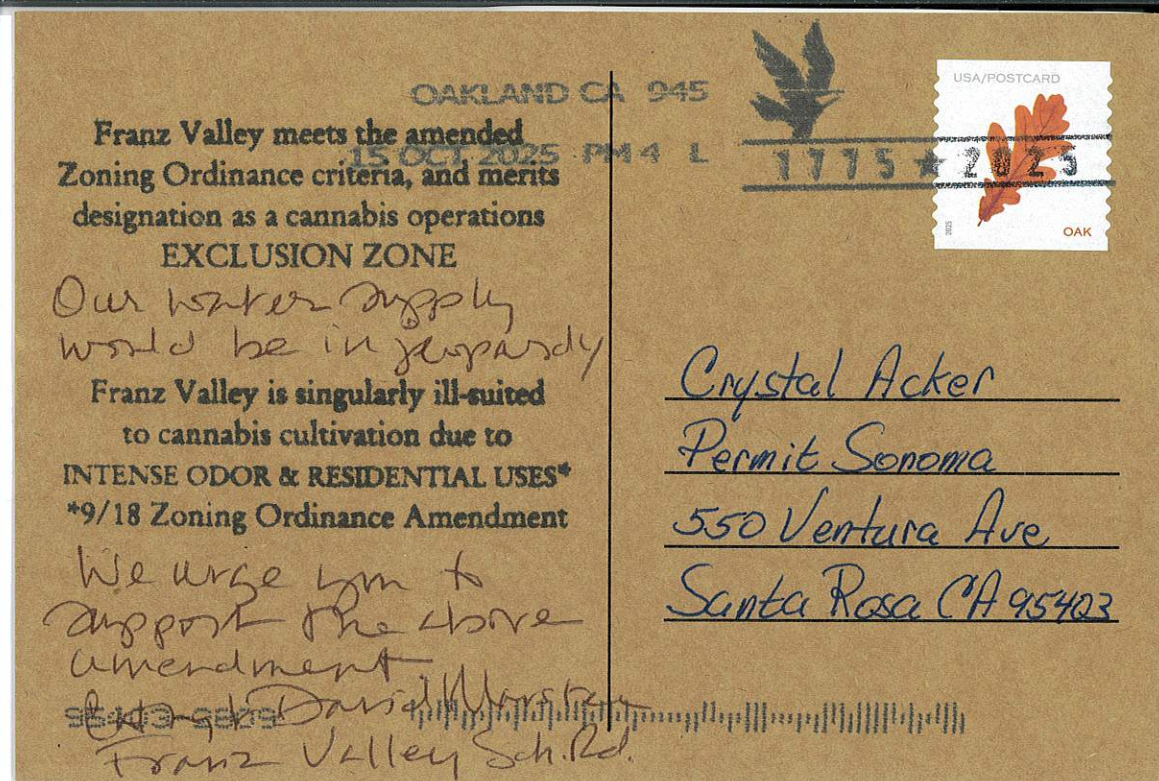 OAKLAND CA 945
15 OCT 2025 PM 4 L
1775 ★ 2025
USA/POSTCARD
2025
OAK
Franz Valley meets the amended
Zoning Ordinance criteria, and merits
designation as a cannabis operations
EXCLUSION ZONE
Our water supply
would be in jeopardy
Franz Valley is singularly ill-suited
to cannabis cultivation due to
INTENSE ODOR & RESIDENTIAL USES*
*9/18 Zoning Ordinance Amendment
We urge you to
support the above
amendment
David
Franz Valley Sch. Rd.
95403-2809
Crystal Acker
Permit Sonoma
550 Ventura Ave
Santa Rosa CA 95403